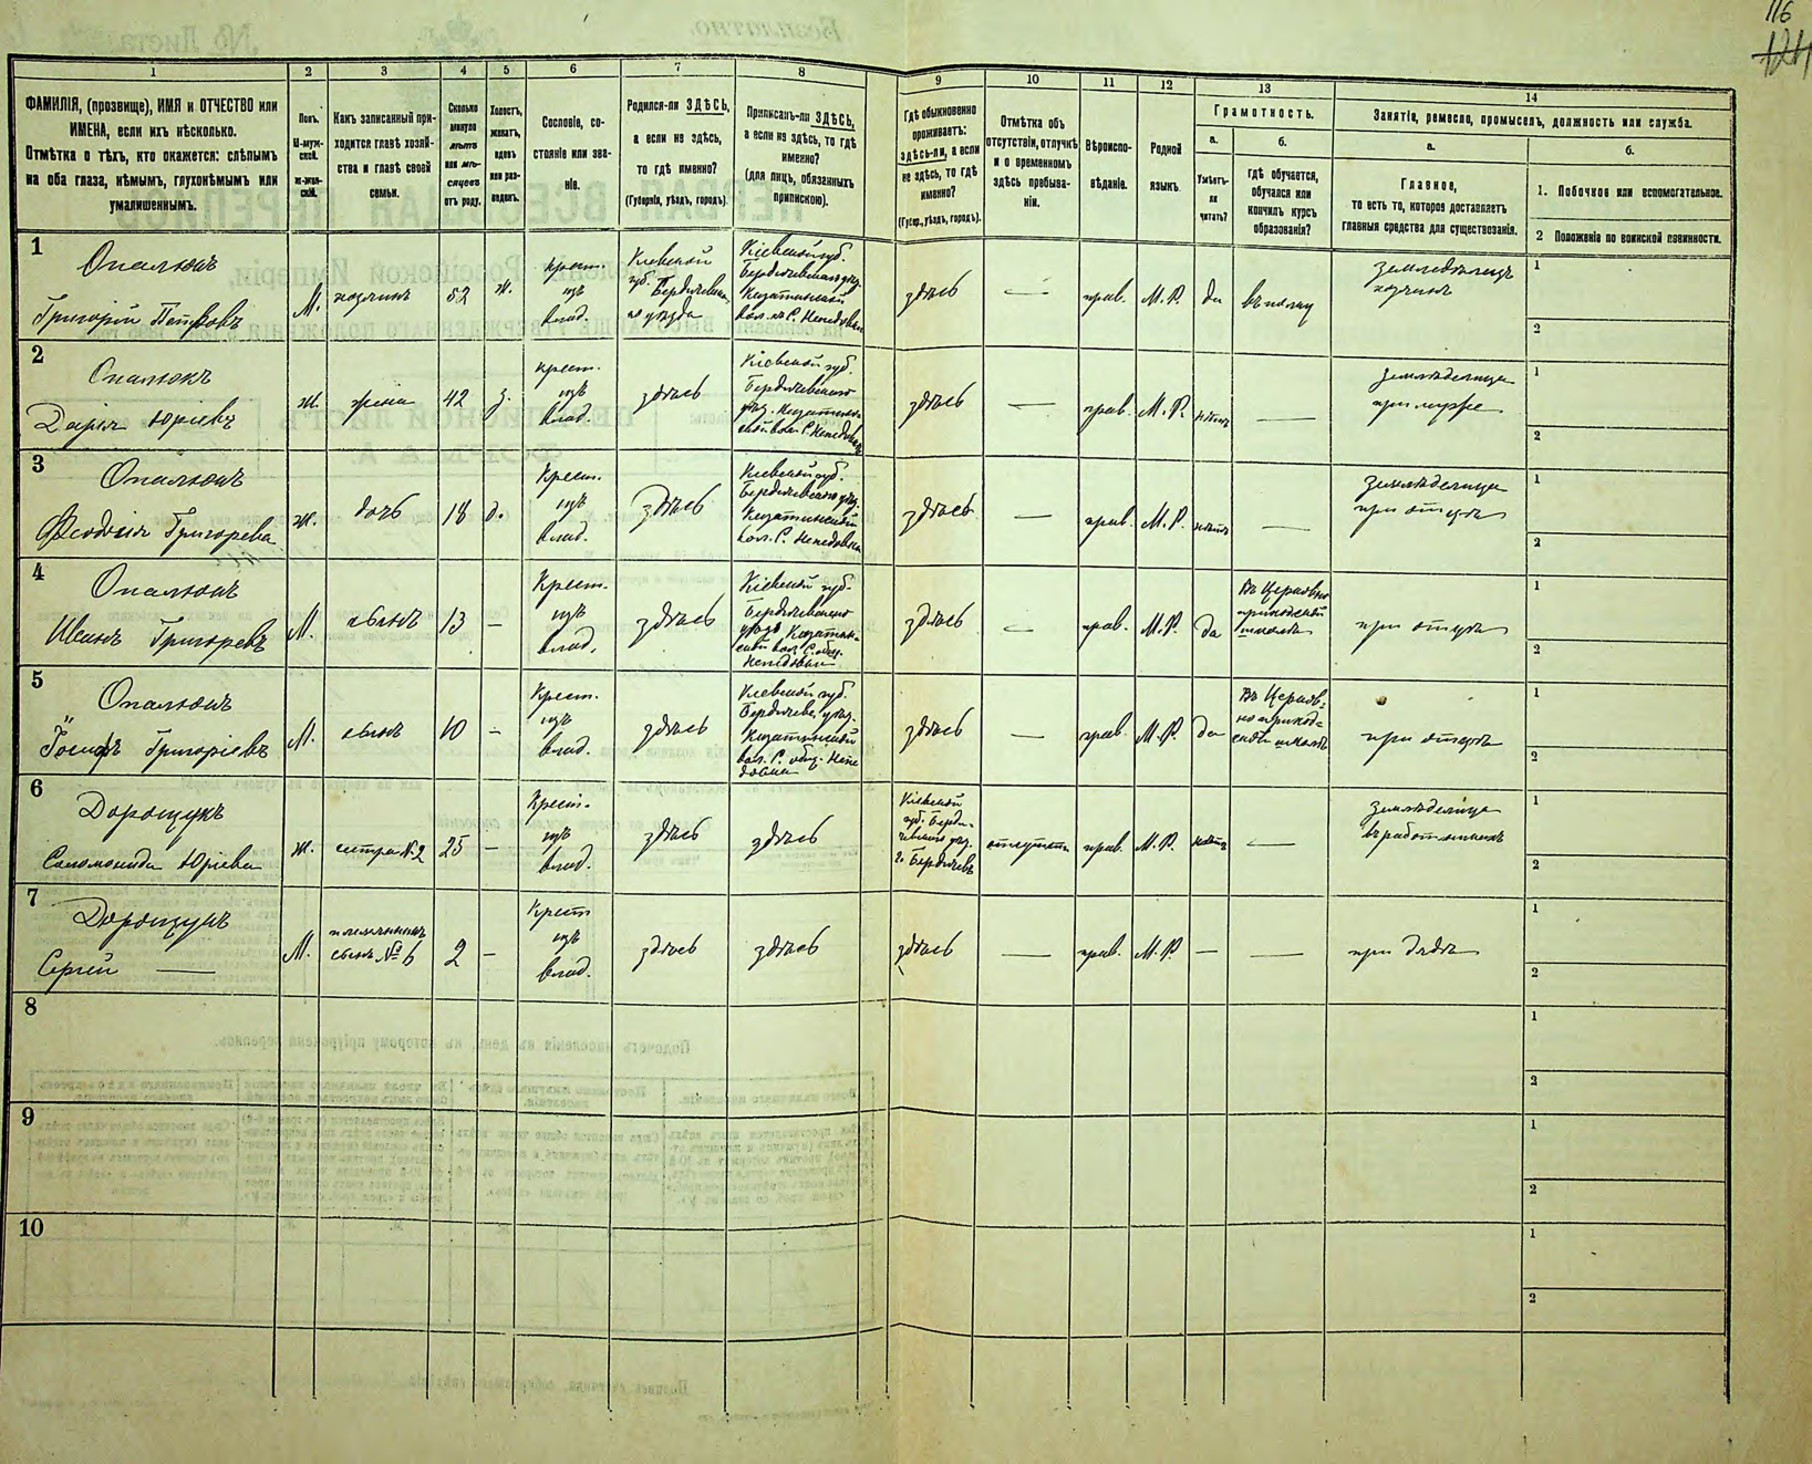 116
124
1 2 3 4 5 6 7 8 9 10 11 12 13 14
ФАМИЛІЯ, (прозвище), ИМЯ и ОТЧЕСТВО или
ИМЕНА, если ихъ нѣсколько.
Отмѣтка о тѣхъ, кто окажется: слѣпымъ
на оба глаза, нѣмымъ, глухонѣмымъ или
умалишеннымъ.
Полъ.
М-муж-
ской.
Ж-жен-
скій.
Какъ записанный при-
ходится главѣ хозяй-
ства и главѣ своей
семьи.
Сколько
минуло
лѣтъ
или мѣ-
сяцевъ
отъ роду.
Холостъ,
женатъ,
вдовъ
или раз-
веденъ.
Сословіе, со-
стояніе или зва-
ніе.
Родился-ли ЗДѢСЬ,
а если не здѣсь,
то гдѣ именно?
(Губернія, уѣздъ, городъ).
Приписанъ-ли ЗДѢСЬ,
а если не здѣсь, то гдѣ
именно?
(для лицъ, обязанныхъ
припискою).
Гдѣ обыкновенно
проживаетъ:
здѣсь-ли, а если
не здѣсь, то гдѣ
именно?
(Губер., уѣздъ, городъ).
Отмѣтка объ
отсутствіи, отлучкѣ
и о временномъ
здѣсь пребыва-
ніи.
Вѣроиспо-
вѣданіе.
Родной
языкъ.
Грамотность.
а.
Умѣетъ-
ли
читать?
б.
гдѣ обучается,
обучался или
кончилъ курсъ
образованія?
Занятіе, ремесло, промыселъ, должность или служба.
а.
Главное,
то есть то, которое доставляетъ
главныя средства для существованія.
б.
1. Побочное или вспомогательное.
2 Положеніе по воинской повинности.
1
Опалюкъ
Григорій Петровъ
М.
хозяинъ
52
ж.
крест.
изъ
влад.
Кіевской
губ. Бердичевска-
го уѣзда
Кіевской губ.
Бердичевскаго уѣз.
Казатинской
вол. с. Непедовки
здѣсь
—
прав.
М. Р.
да
въ полку
Земледѣлецъ
хозяинъ
1
2
2
Опалюкъ
Дарія Юріевъ
ж.
жена
42
з.
крест.
изъ
влад.
здѣсь
Кіевской губ.
Бердичевскаго
уѣз. Казатин-
ской вол. с. Непедовки
здѣсь
—
прав.
М. Р.
нѣтъ
—
Земледелица
при мужѣ
1
2
3
Опалюкъ
Феодосія Григорева
ж.
дочь
18
д.
Крест.
изъ
влад.
Здѣсь
Кіевской губ.
Бердичевскаго уѣз.
Казатинской
вол. с. Непедовки
здѣсь
—
прав.
М. Р.
нѣтъ
—
Земледелица
при отцѣ
1
2
4
Опалюкъ
Иванъ Григоревъ
М.
сынъ
13
—
Крест.
изъ
влад.
здѣсь
Кіевской губ.
Бердичевскаго
уѣзд. Казатин-
ской вол. с. общ.
Непедовки
здѣсь
—
прав.
М. Р.
да
Въ Церковно
приходской
школѣ
при отцѣ
1
2
5
Опалюкъ
Іосифъ Григоріевъ
М.
сынъ
10
—
Крест.
изъ
влад.
здѣсь
Кіевской губ.
Бердичевс. уѣз.
Казатинской
вол. с. общ. Непе
довки
здѣсь
—
прав.
М. Р.
да
Въ Церков-
но приход-
ской школѣ
при отцѣ
1
2
6
Дорощукъ
Саломонида Юріева
ж.
сестра № 2
25
—
Крест.
изъ
влад.
здѣсь
здѣсь
Кіевской
губ. Берди-
чевскаго уѣз.
г. Бердичевъ
прав.
М. Р.
нѣтъ
—
Земледелица
1
2
7
Дорощукъ
Сергій —
М.
племянникъ
сынъ № 6
2
—
Крест
изъ
влад.
здѣсь
здѣсь
здѣсь
—
прав.
М. Р.
—
—
при дядѣ
1
2
8
1
2
9
1
2
10
1
2